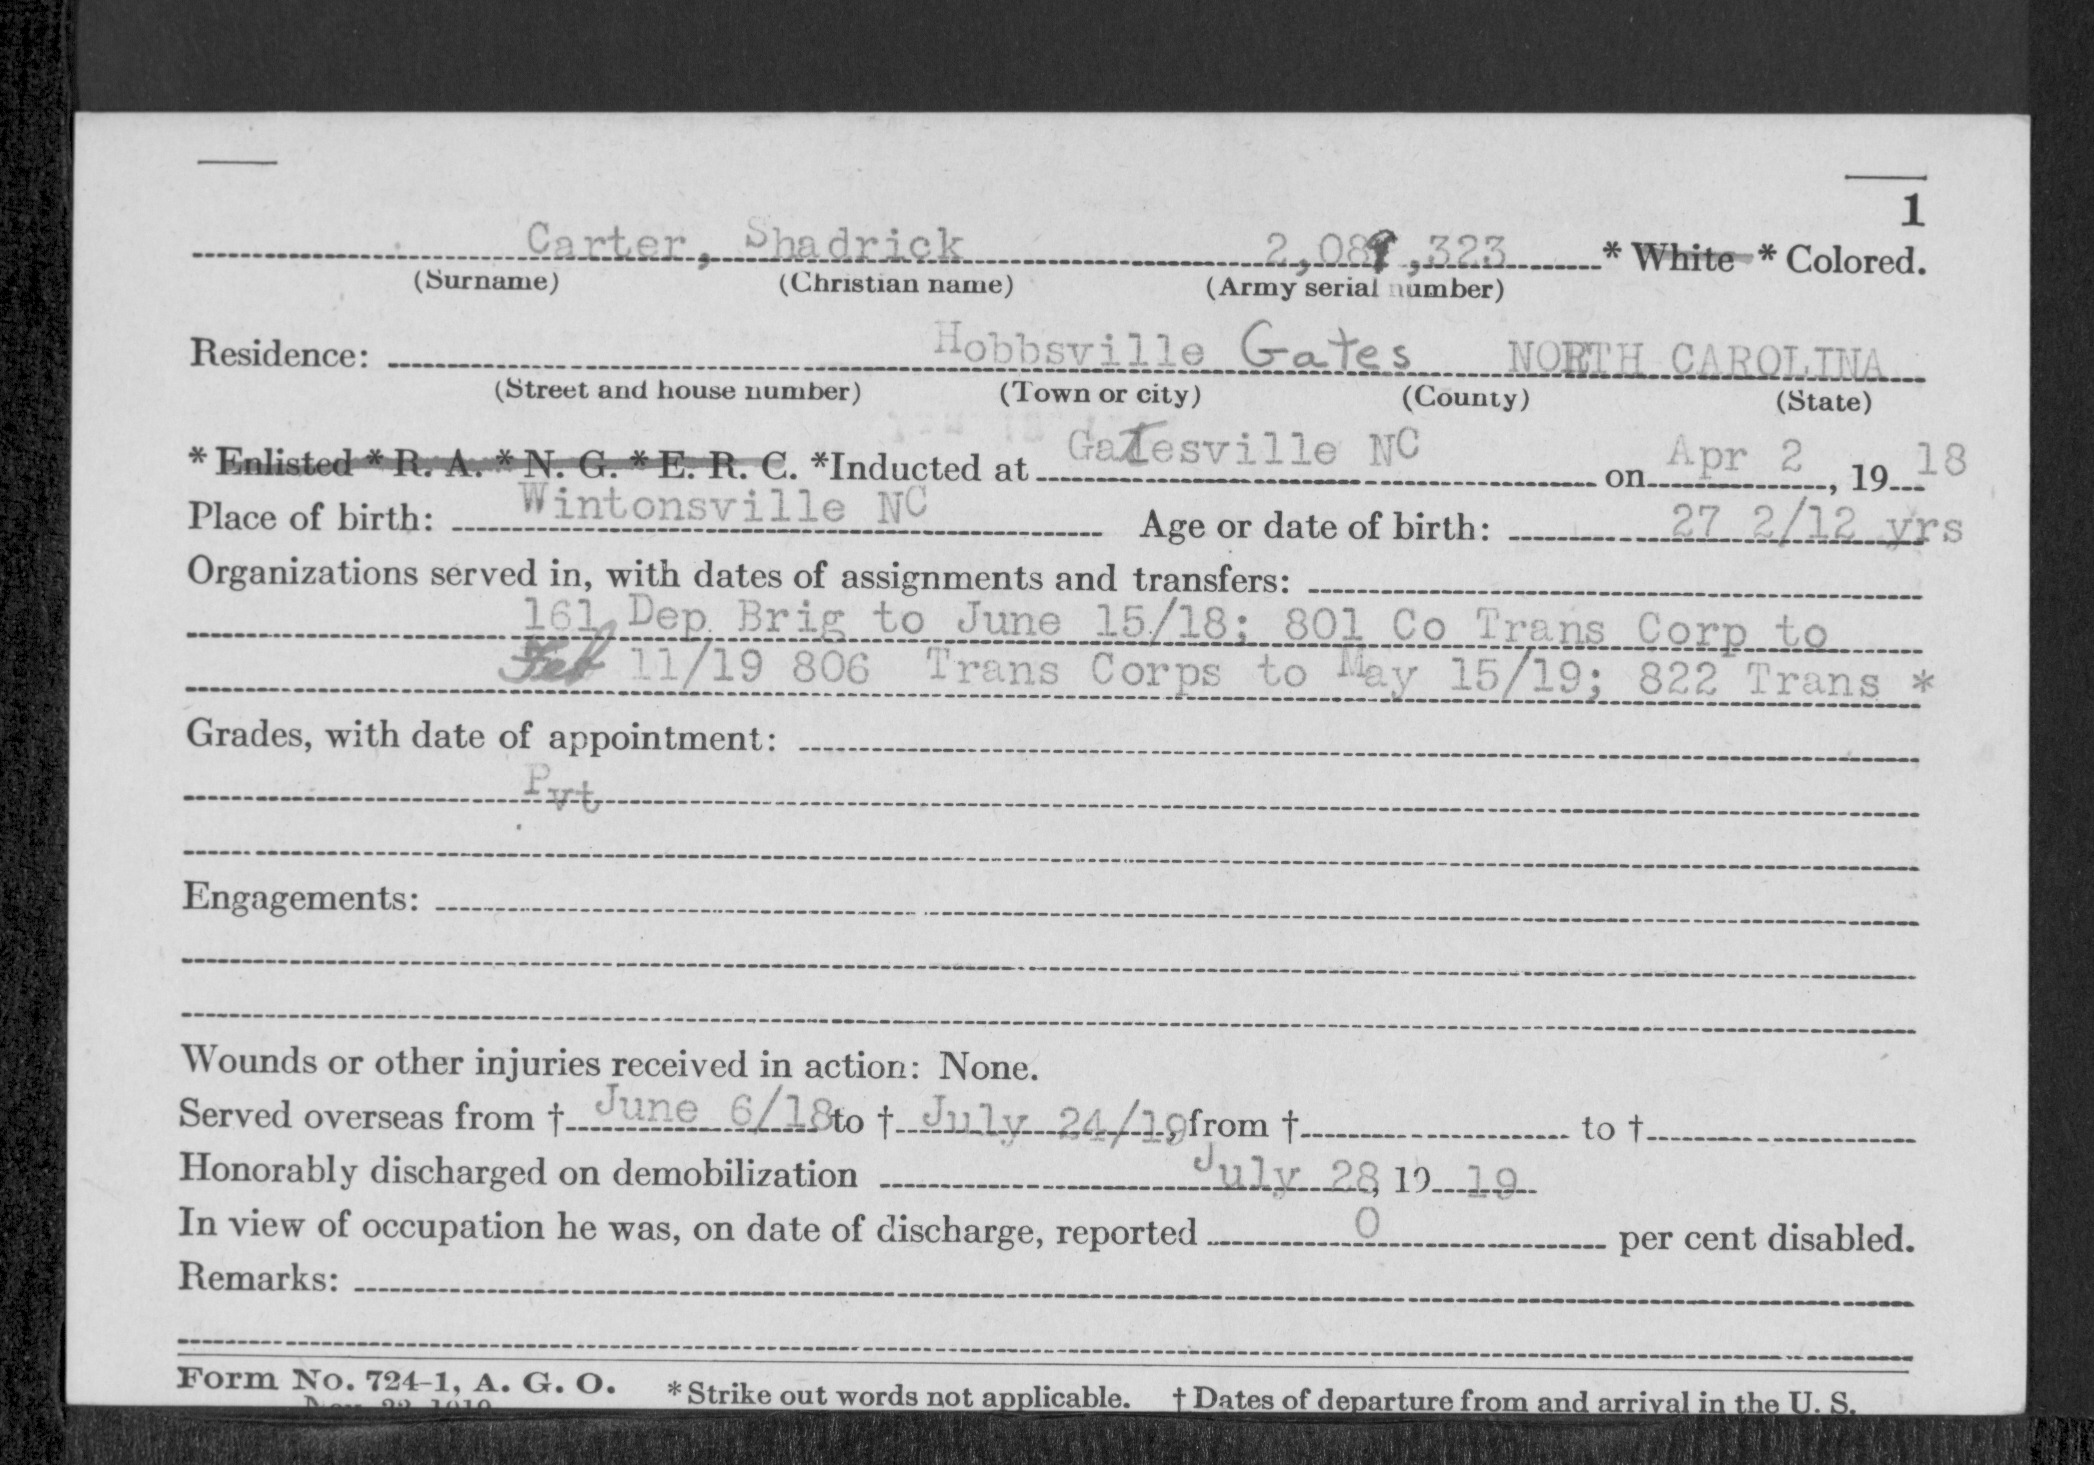 1
Carter, Shadrick 2,089,323 * White * Colored.
(Surname) (Christian name) (Army serial number)
Residence: Hobbsville Gates NORTH CAROLINA
(Street and house number) (Town or city) (County) (State)
* Enlisted * R. A. * N. G. * E. R. C. *Inducted at Gatesville NC on Apr 2, 1918
Place of birth: Wintonsville NC Age or date of birth: 27 2/12 yrs
Organizations served in, with dates of assignments and transfers:
161 Dep Brig to June 15/18; 801 Co Trans Corp to
Feb 11/19 806 Trans Corps to May 15/19; 822 Trans *
Grades, with date of appointment:
Pvt
Engagements:
Wounds or other injuries received in action: None.
Served overseas from † June 6/18 to † July 24/19, from † to †
Honorably discharged on demobilization July 28, 1919
In view of occupation he was, on date of discharge, reported 0 per cent disabled.
Remarks:
Form No. 724-1, A. G. O. * Strike out words not applicable. † Dates of departure from and arrival in the U. S.